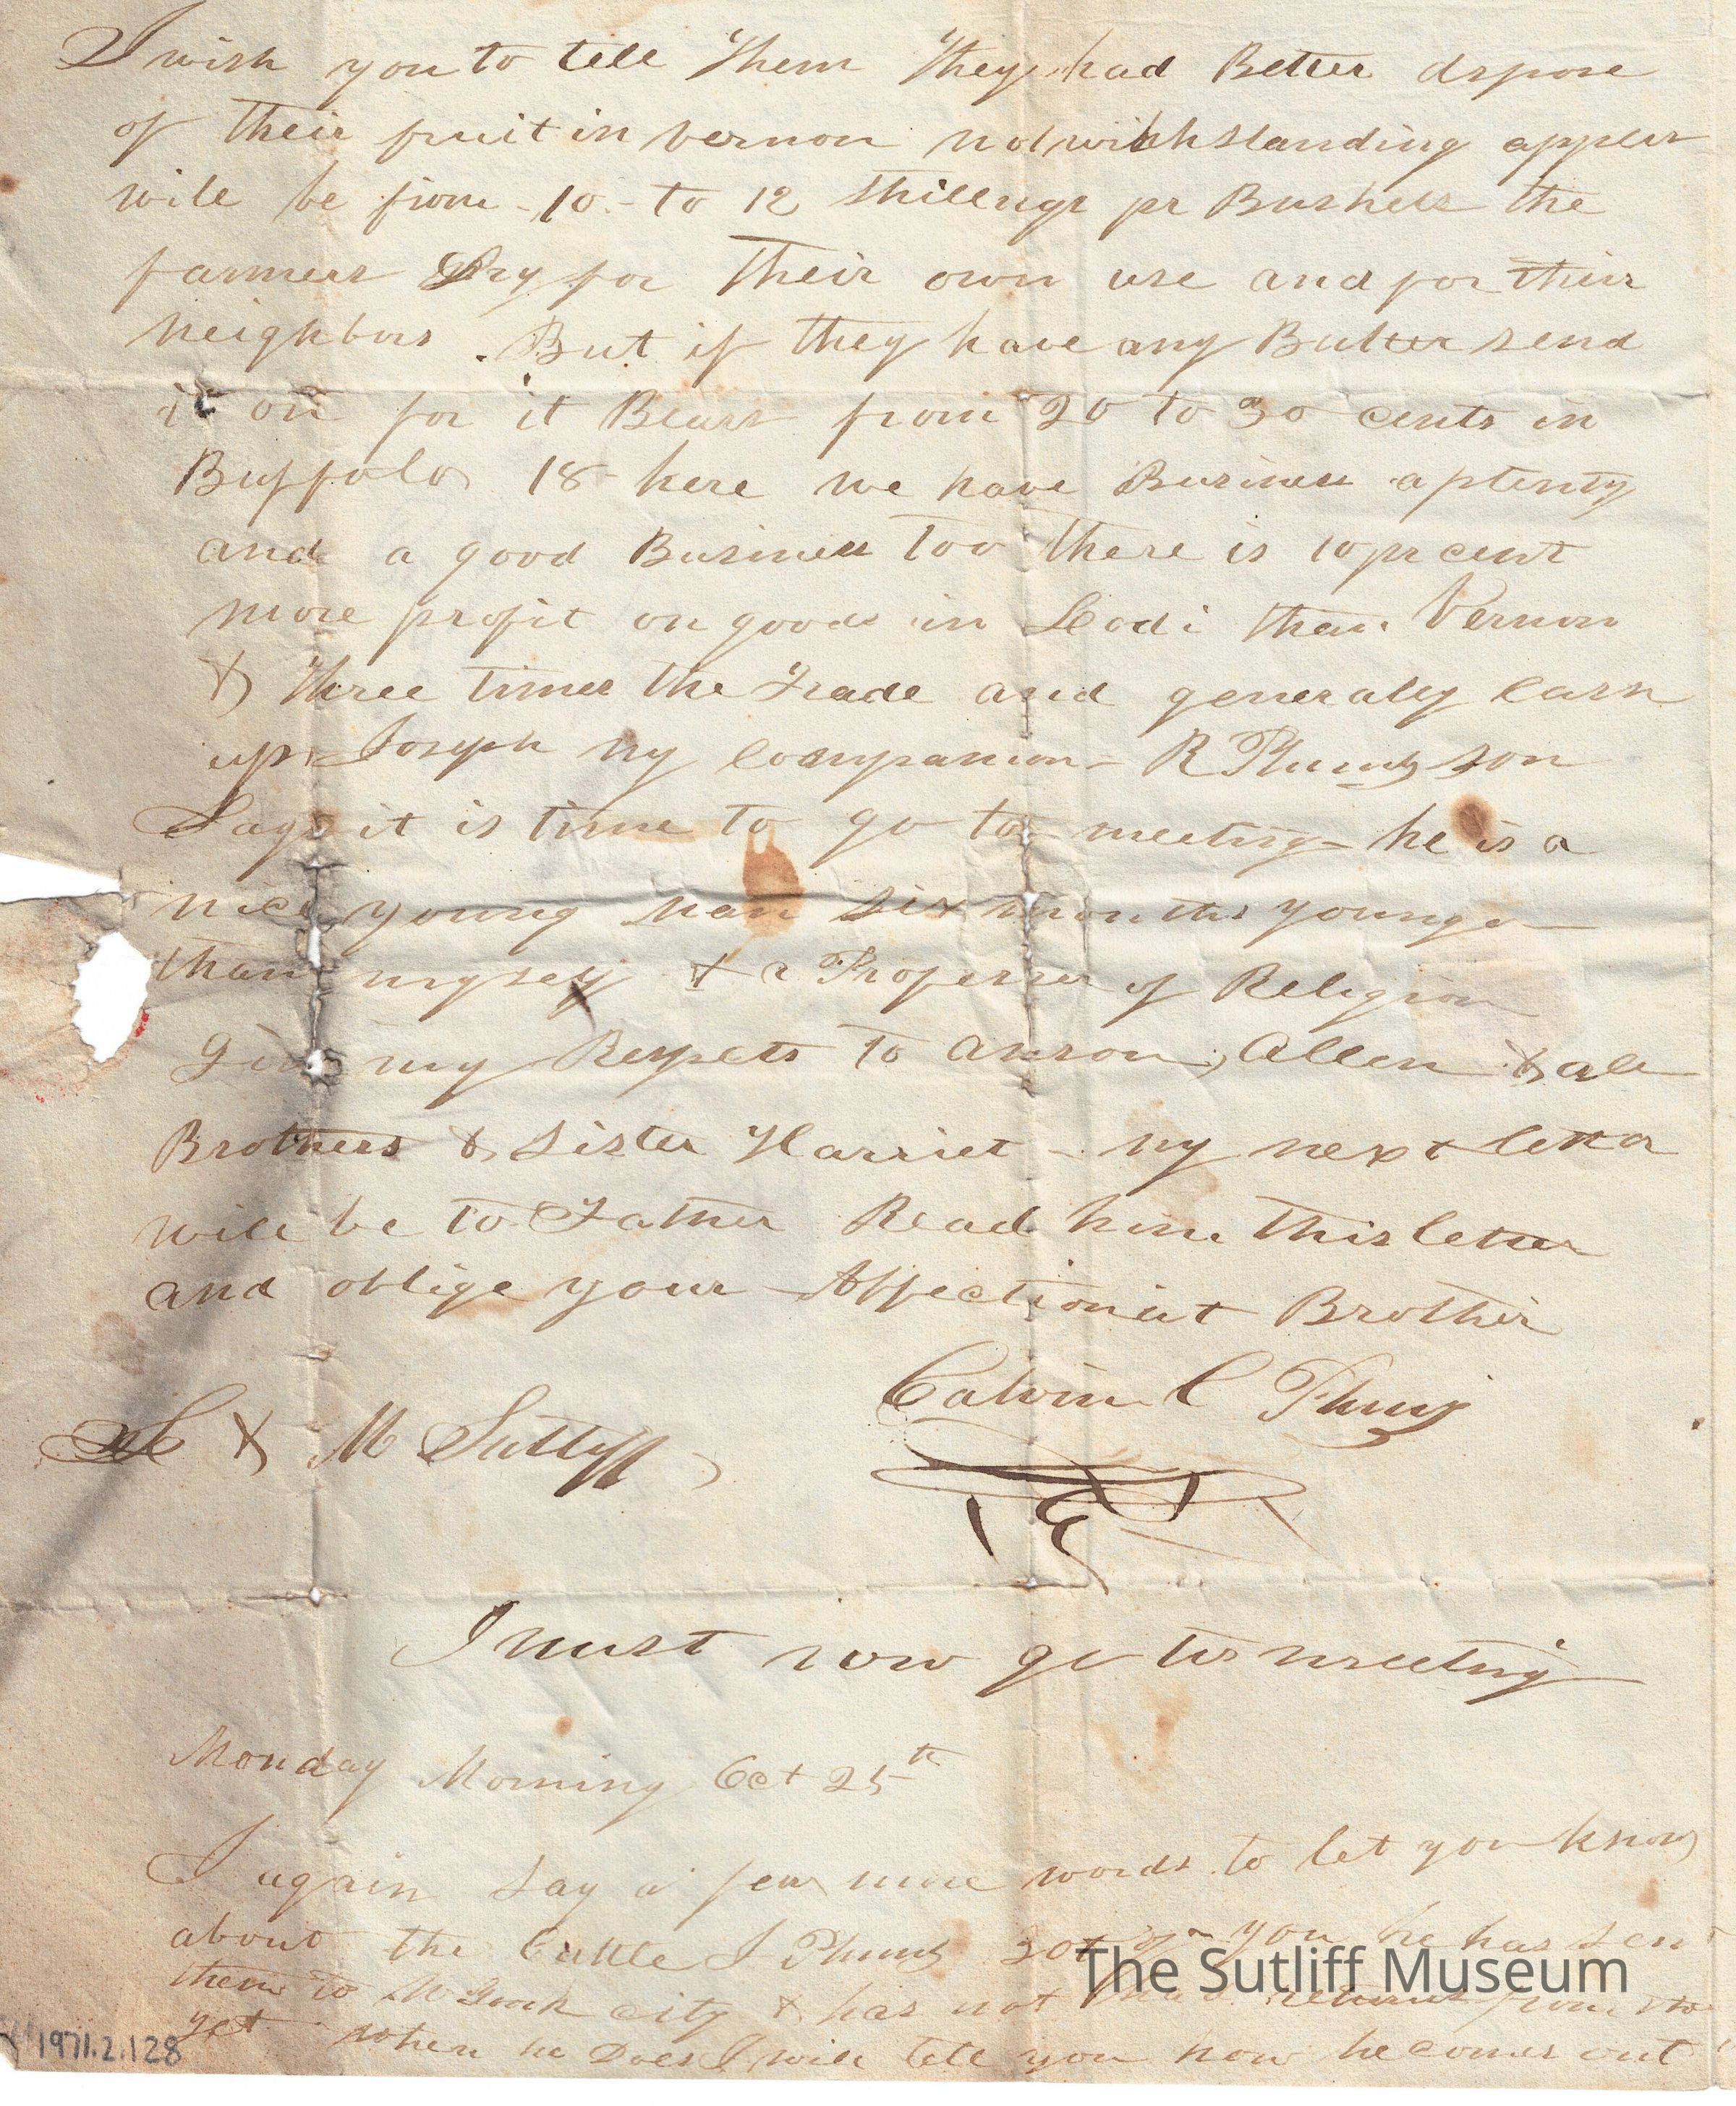 I wish you to tell Them They had Better dspose
of their fruit in vernon notwithstanding apples
will be from 10 - to 12 Shillings pr Bushels the
farmers Dry for Their own use and for their
neighbors . But if they have any Butter send
it on for it Bears from 20 to 30 cents in
Buffalo 18 here we have Business a plenty
and a good Business Too there is 10 pr cent
more profit on goods in Lodi than Vernon
& Three times the Trade and generaly Cash
up. Joseph my Companion - R Plumbs son
Says it is time to go to meeting - he is a
nice young man six months younger
than myself & a Professer of Religion
Give my Respets to Anson, Allen & all
Brothers & Sister Harriet - my next letter
will be to Father Read him this letter
and oblige your Affectionat Brother
Calvin C Plumb
& M Sutlyff
I must now go to meeting
Monday Morning Oct 25th
I again Say a few more words to let you know
about the Cattle I Plumb you he has sent
them to N York city & has not from
yet when he Does I will tell you how he comes out
The Sutliff Museum
1971.2.128